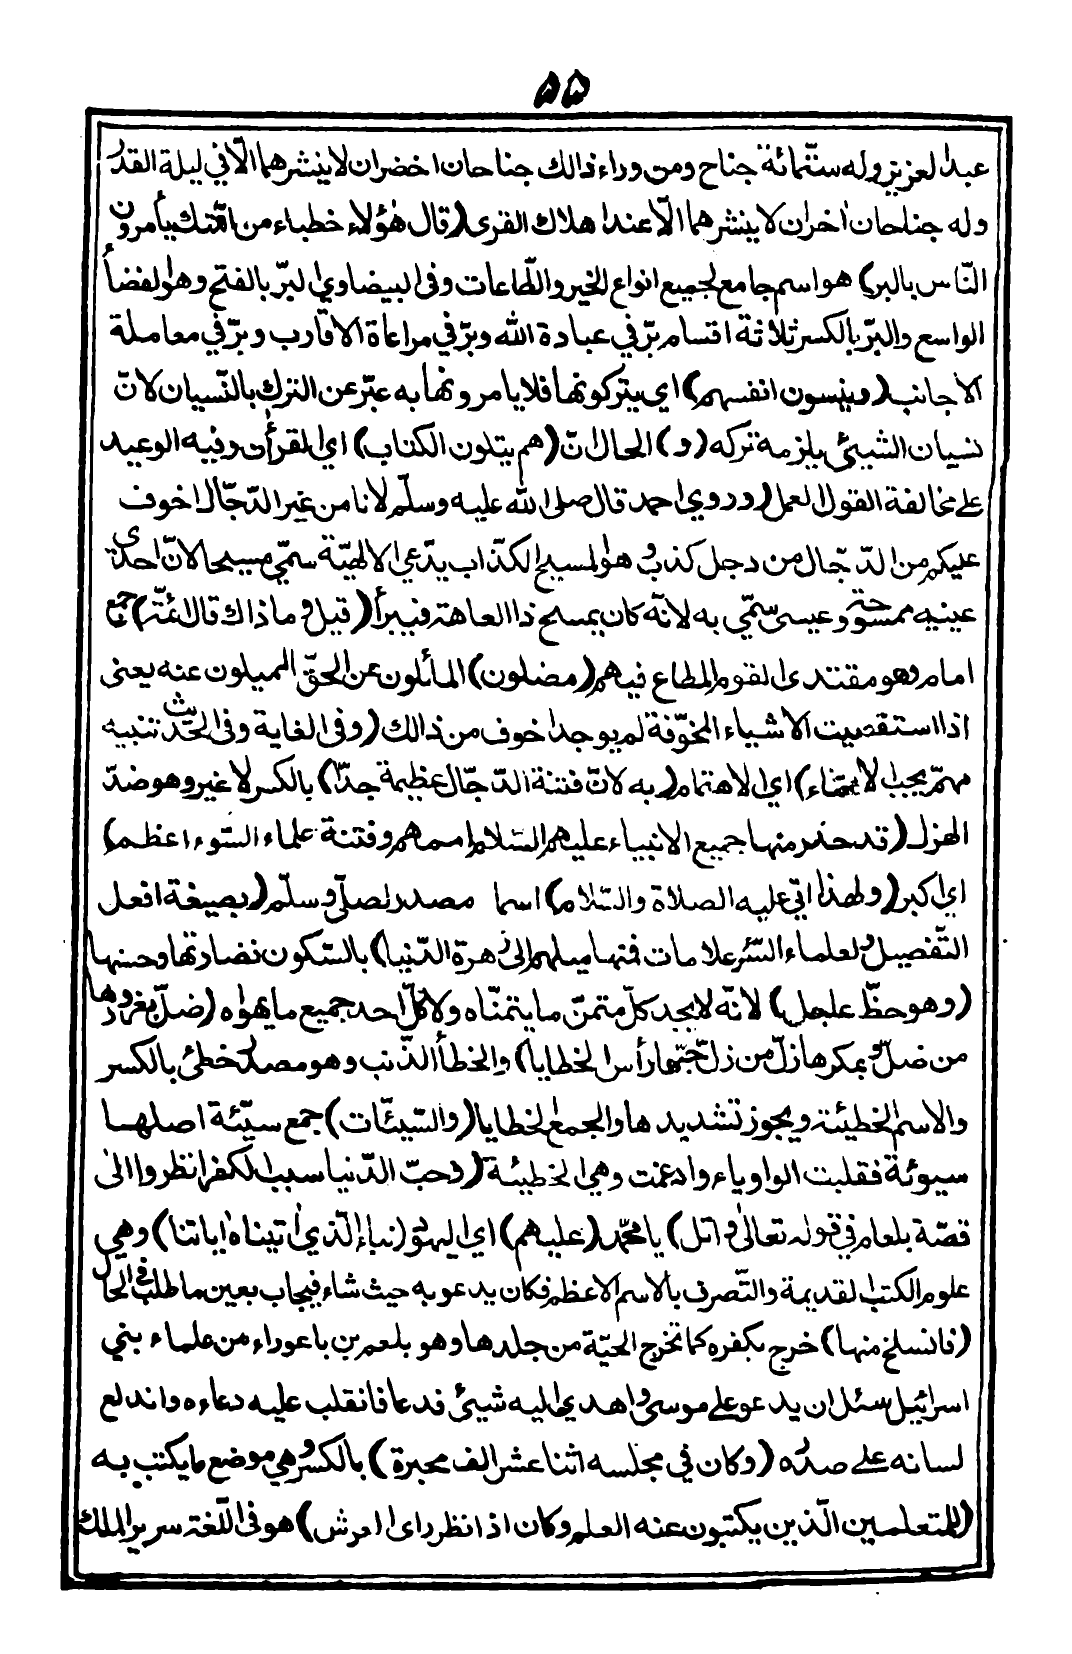 ٥٥
عبد العزيز وله ستّمائة جناح ومن وراء ذالك جناحان اخضران لا ينشرهما الّا في ليلة القدر
وله جناحان اٰخران لا ينشرهما الّا عند اهلاك القرى (قال هٰؤلاء خطباء من امّتك يأمرون
النّاس بالبر) هو اسم جامع لجميع انواع الخير والطّاعات وفى البيضاوي البرّ بالفتح وهو الفضأ
الواسع والبرّ بالكسر ثلاثة اقسام برّ في عبادة الله وبرّ في مراعاة الاقارب وبرّ في معاملة
الاجانب (وينسون انفسهم) اي يتركونها فلا يامرونها به عبّر عن الترك بالنّسيان لانّ
نسيان الشيئ يلزمه تركه (و) الحال انّ (هم يتلون الكتاب) اي القرأن وفيه الوعيد
على مخالفة القول العمل (وروي احمد قال صلى الله عليه وسلّم لانا من غير الدّجّال اخوف
عليكم من الدّجّال من دجل كذب وهو المسيح الكذّاب يدّعي الالهيّة سمّي مسيحا لانّ احدى
عينيه ممسوحة وعيسى سمّي به لانّه كان يمسح ذا العاهة فيبرأ (قيل وما ذاك قال ائمّة) جمع
امام وهو مقتدى القوم المطاع فيهم (مضلون) المأئلون عن الحقّ المميلون عنه يعنى
اذا استقصيت الاشياء المخوّفة لم يوجد اخوف من ذالك (وفى الغاية وفى الحديث تنبيه
مهمّ يجب الاعتناء) اي الاهتمام (به لانّ فتنة الدّجّال عظيمة جدّا) بالكسر لا غير وهو ضدّ
الهزل (قد حذر منها جميع الانبياء عليهم السّلام اممهم وفتنة علماء السّوء اعظم)
اي اكبر (ولهذا اتى عليه الصلاة والسّلام) اسما مصدر لصلّى وسلّم (بصيغة افعل
التّفصيل ولعلماء السّؤ علامات فمنها ميلهم الى زهرة الدّنيا) بالسّكون نضارتها وحسنها
(وهو حظّ عاجل) لانّه لا يجد كلّ متمنّ ما يتمنّاه ولا كلّ احد جميع ما يهواه (ضلّ بغرورها
من ضلّ وبمكرها زلّ من زلّ حبّها رأس الخطايا) والخطأ الذّنب وهو مصدر خطئ بالكسر
والاسم الخطيئة ويجوز تشديدها والجمع الخطايا (والسّيئّات) جمع سيّئة اصلهـا
سيوئة فقلبت الواو ياء وادغمت وهي الخطيئة (وحبّ الدّنيا سبب الكفر انظروا الى
قصّة بلعام في قوله تعالى واتل) يا محمّد (عليهم) اي اليهود (نبأ الّذي اٰتيناه اٰياتنا) وهي
علوم الكتب القديمة والتّصرف بالاسم الاعظم فكان يدعو به حيث شاء فيجاب بعين ما طلب في الحال
(فانسلخ منها) خرج بكفره كما تخرج الحيّة من جلدها وهو بلعم بن باعوراء من علماء بني
اسرائيل سئل ان يدعو على موسى واهدي اليه شيئ فدعا فانقلب عليه دعاءه واندلع
لسانه على صدره (وكان في مجلسه اثنا عشر الف محبرة) بالكسر وهي موضع ما يكتب به
(للمتعلمين الّذين يكتبون عنه العلم وكان اذا نظر راى العرش) هو فى اللّغة سرير الملك